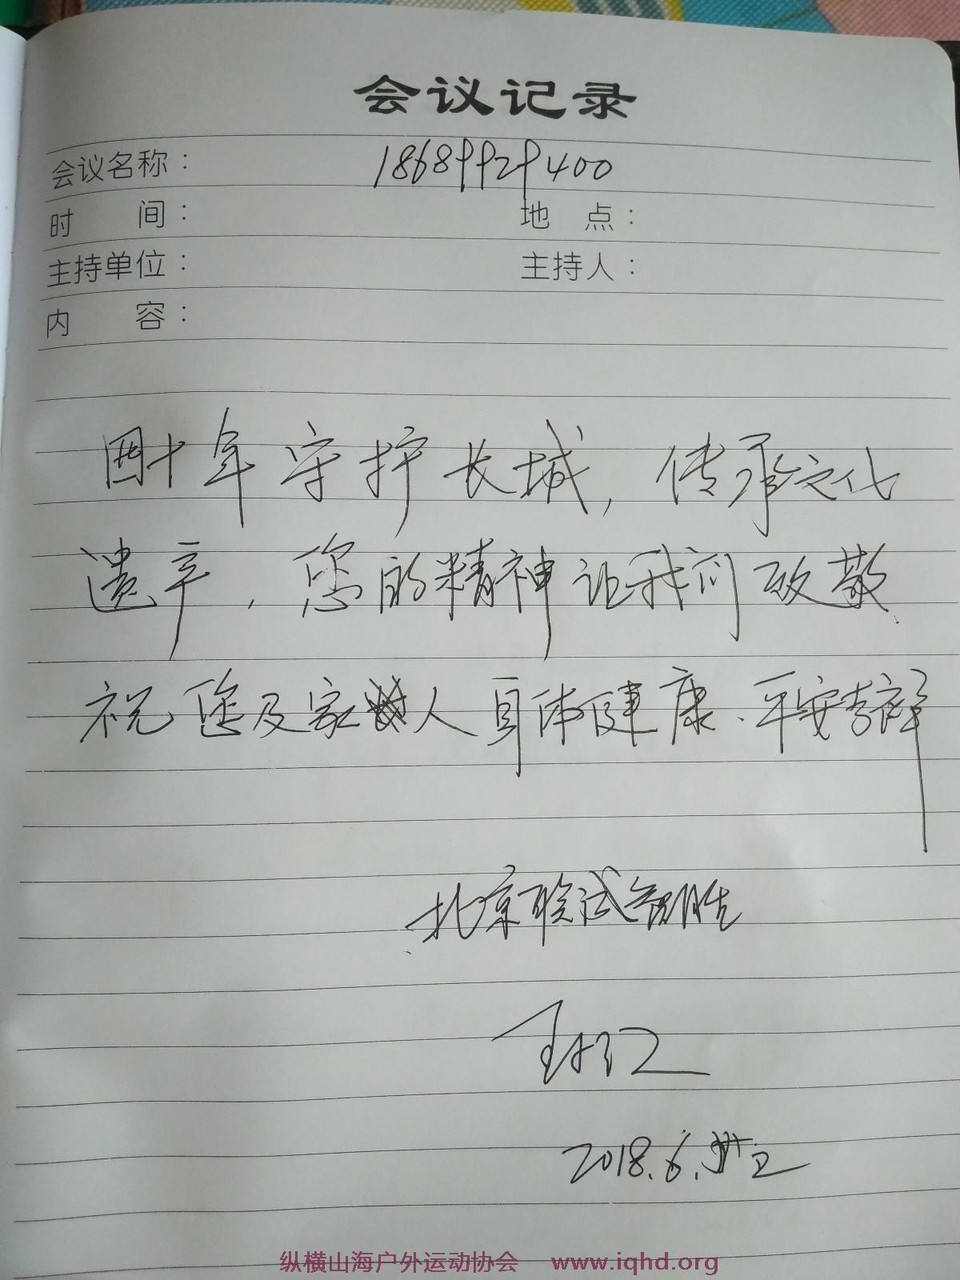 会议记录
会议名称： 18689929400
时 间： 地 点：
主持单位： 主持人：
内 容：
四十年守护长城，传承文化
遗产，您的精神让我们致敬
祝您及家人身体健康、平安吉祥
北京联试智胜
2018.6.
纵横山海户外运动协会 www.iqhd.org